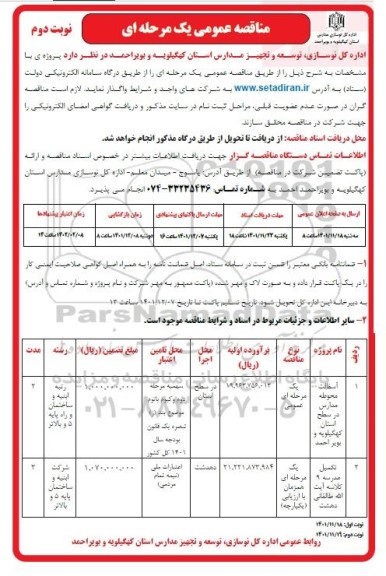 مناقصه عمومی یک مرحله ای
نوبت دوم
اداره کل نوسازی، توسعه و تجهیز مدارس استان کهگیلویه و بویراحمد در نظر دارد پروژه ی با
مشخصات به شرح ذیل را از طریق مناقصه عمومی یک مرحله ای را از طریق درگاه سامانه الکترونیکی دولت
(ستاد) به آدرس www.setadiran.ir به شرکت های واجد و شرایط واگذار نمایند. لازم است مناقصه
گران در صورت عدم عضویت قبلی، مراحل ثبت نام در سایت مذکور و دریافت گواهی امضای الکترونیکی را
جهت شرکت در مناقصه محقق سازند.
محل دریافت اسناد مناقصه: از دریافت تا تحویل از طریق درگاه مذکور انجام خواهد شد.
اطلاعات تماس دستگاه مناقصه گزار جهت دریافت اطلاعات بیشتر در خصوص اسناد مناقصه و ارائه
(پاکت تضمین شرکت در مناقصه) از طریق آدرس: یاسوج - میدان معلم- اداره کل نوسازی مدارس استان
کهگیلویه و بویراحمد به شماره تماس: ۳۳۲۳۵۴۳۶-۰۷۴ انجام می پذیرد.
ارسال به صفحه اعلان عمومی
مهلت دریافت اسناد
مهلت ارسال پاکتهای پیشنهادی
زمان بازگشایی
زمان اعتبار پیشنهادها
سه شنبه ۱۴۰۱/۱۱/۱۸ ساعت ۸
یکشنبه ۱۴۰۱/۱۱/۲۳ ساعت ۱۸
یکشنبه ۱۴۰۱/۱۲/۰۷ ساعت ۱۶
دوشنبه ۱۴۰۱/۱۲/۰۸ ساعت ۸
۱- ضمانتنامه بانکی معتبر را ضمن ثبت در سامانه ستاد، اصل ضمانت نامه را به همراه اصل گواهی صلاحیت ایمنی کار
را در یک پاکت قرار داده و به صورت لاک و مهر شده (پاکت ممهور به مهر شرکت و نام پروژه و شماره تماس و آدرس)
به دبیرخانه این اداره کل تحویل شود. تاریخ تسلیم پاکت تا تاریخ ۱۴۰۱/۱۲/۰۷ ساعت ۱۴
۲- سایر اطلاعات و جزئیات مربوط در اسناد و شرایط مناقصه موجود است.
ردیف
نام پروژه
نوع مناقصه
برآورد اولیه (ریال)
محل اجرا
محل تامین اعتبار
مبلغ تضمین (ریال)
رشته
مدت
۱
آسفالت محوطه مدارس در سطح استان کهگیلویه و بویر احمد
یک مرحله ای عمومی
در سطح استان
۱,۰۰۰,۰۰۰,۰۰۰
رتبه ابنیه و ساختمان و راه پایه ۵ و بالاتر
۲
تکمیل مدرسه ۹ کلاسه آیت الله طالقانی دهدشت
یک مرحله ای همزمان با ارزیابی (یکپارچه)
۲۱,۲۲۱,۸۷۳,۹۸۴
دهدشت
اعتبارات ملی (نیمه تمام مردمی)
۱,۰۷۰,۰۰۰,۰۰۰
شرکت ابنیه و ساختمان پایه ۵ و بالاتر
۳
نوبت اول: ۱۴۰۱/۱۱/۱۸
نوبت دوم: ۱۴۰۱/۱۱/۱۹
روابط عمومی اداره کل نوسازی، توسعه و تجهیز مدارس استان کهگیلویه و بویراحمد